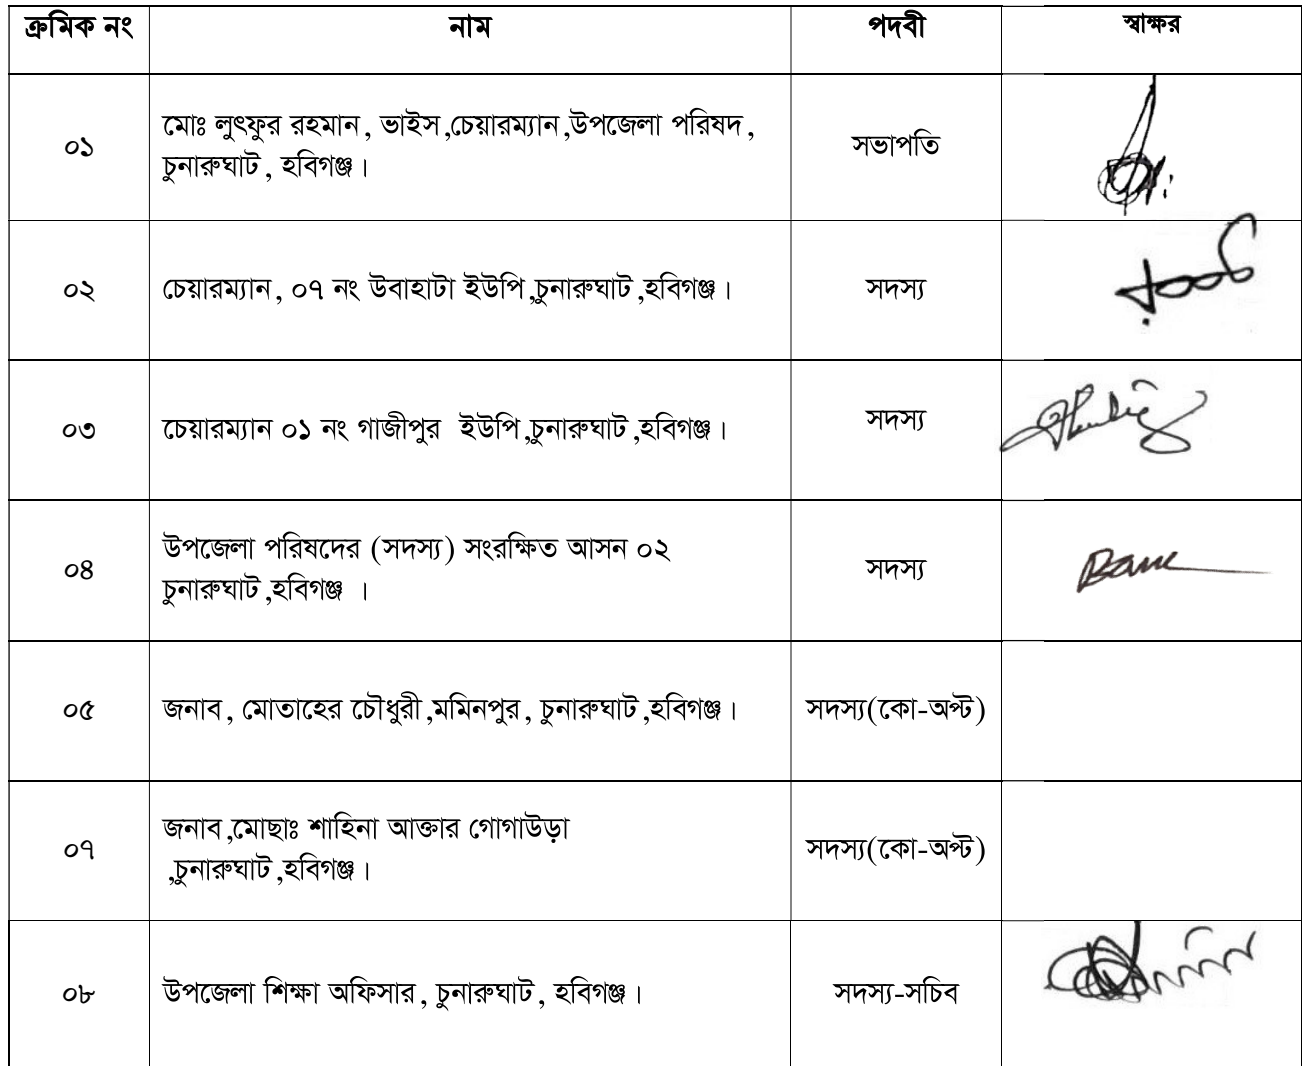 ক্রমিক নং নাম পদবী স্বাক্ষর
০১ মোঃ লুৎফুর রহমান, ভাইস,চেয়ারম্যান,উপজেলা পরিষদ, সভাপতি
চুনারুঘাট, হবিগঞ্জ।
০২ চেয়ারম্যান, ০৭ নং উবাহাটা ইউপি,চুনারুঘাট,হবিগঞ্জ। সদস্য
০৩ চেয়ারম্যান ০১ নং গাজীপুর ইউপি,চুনারুঘাট,হবিগঞ্জ। সদস্য
০৪ উপজেলা পরিষদের (সদস্য) সংরক্ষিত আসন ০২ সদস্য
চুনারুঘাট,হবিগঞ্জ ।
০৫ জনাব, মোতাহের চৌধুরী,মমিনপুর, চুনারুঘাট,হবিগঞ্জ। সদস্য(কো-অপ্ট)
০৭ জনাব,মোছাঃ শাহিনা আক্তার গোগাউড়া সদস্য(কো-অপ্ট)
,চুনারুঘাট,হবিগঞ্জ।
০৮ উপজেলা শিক্ষা অফিসার, চুনারুঘাট, হবিগঞ্জ। সদস্য-সচিব